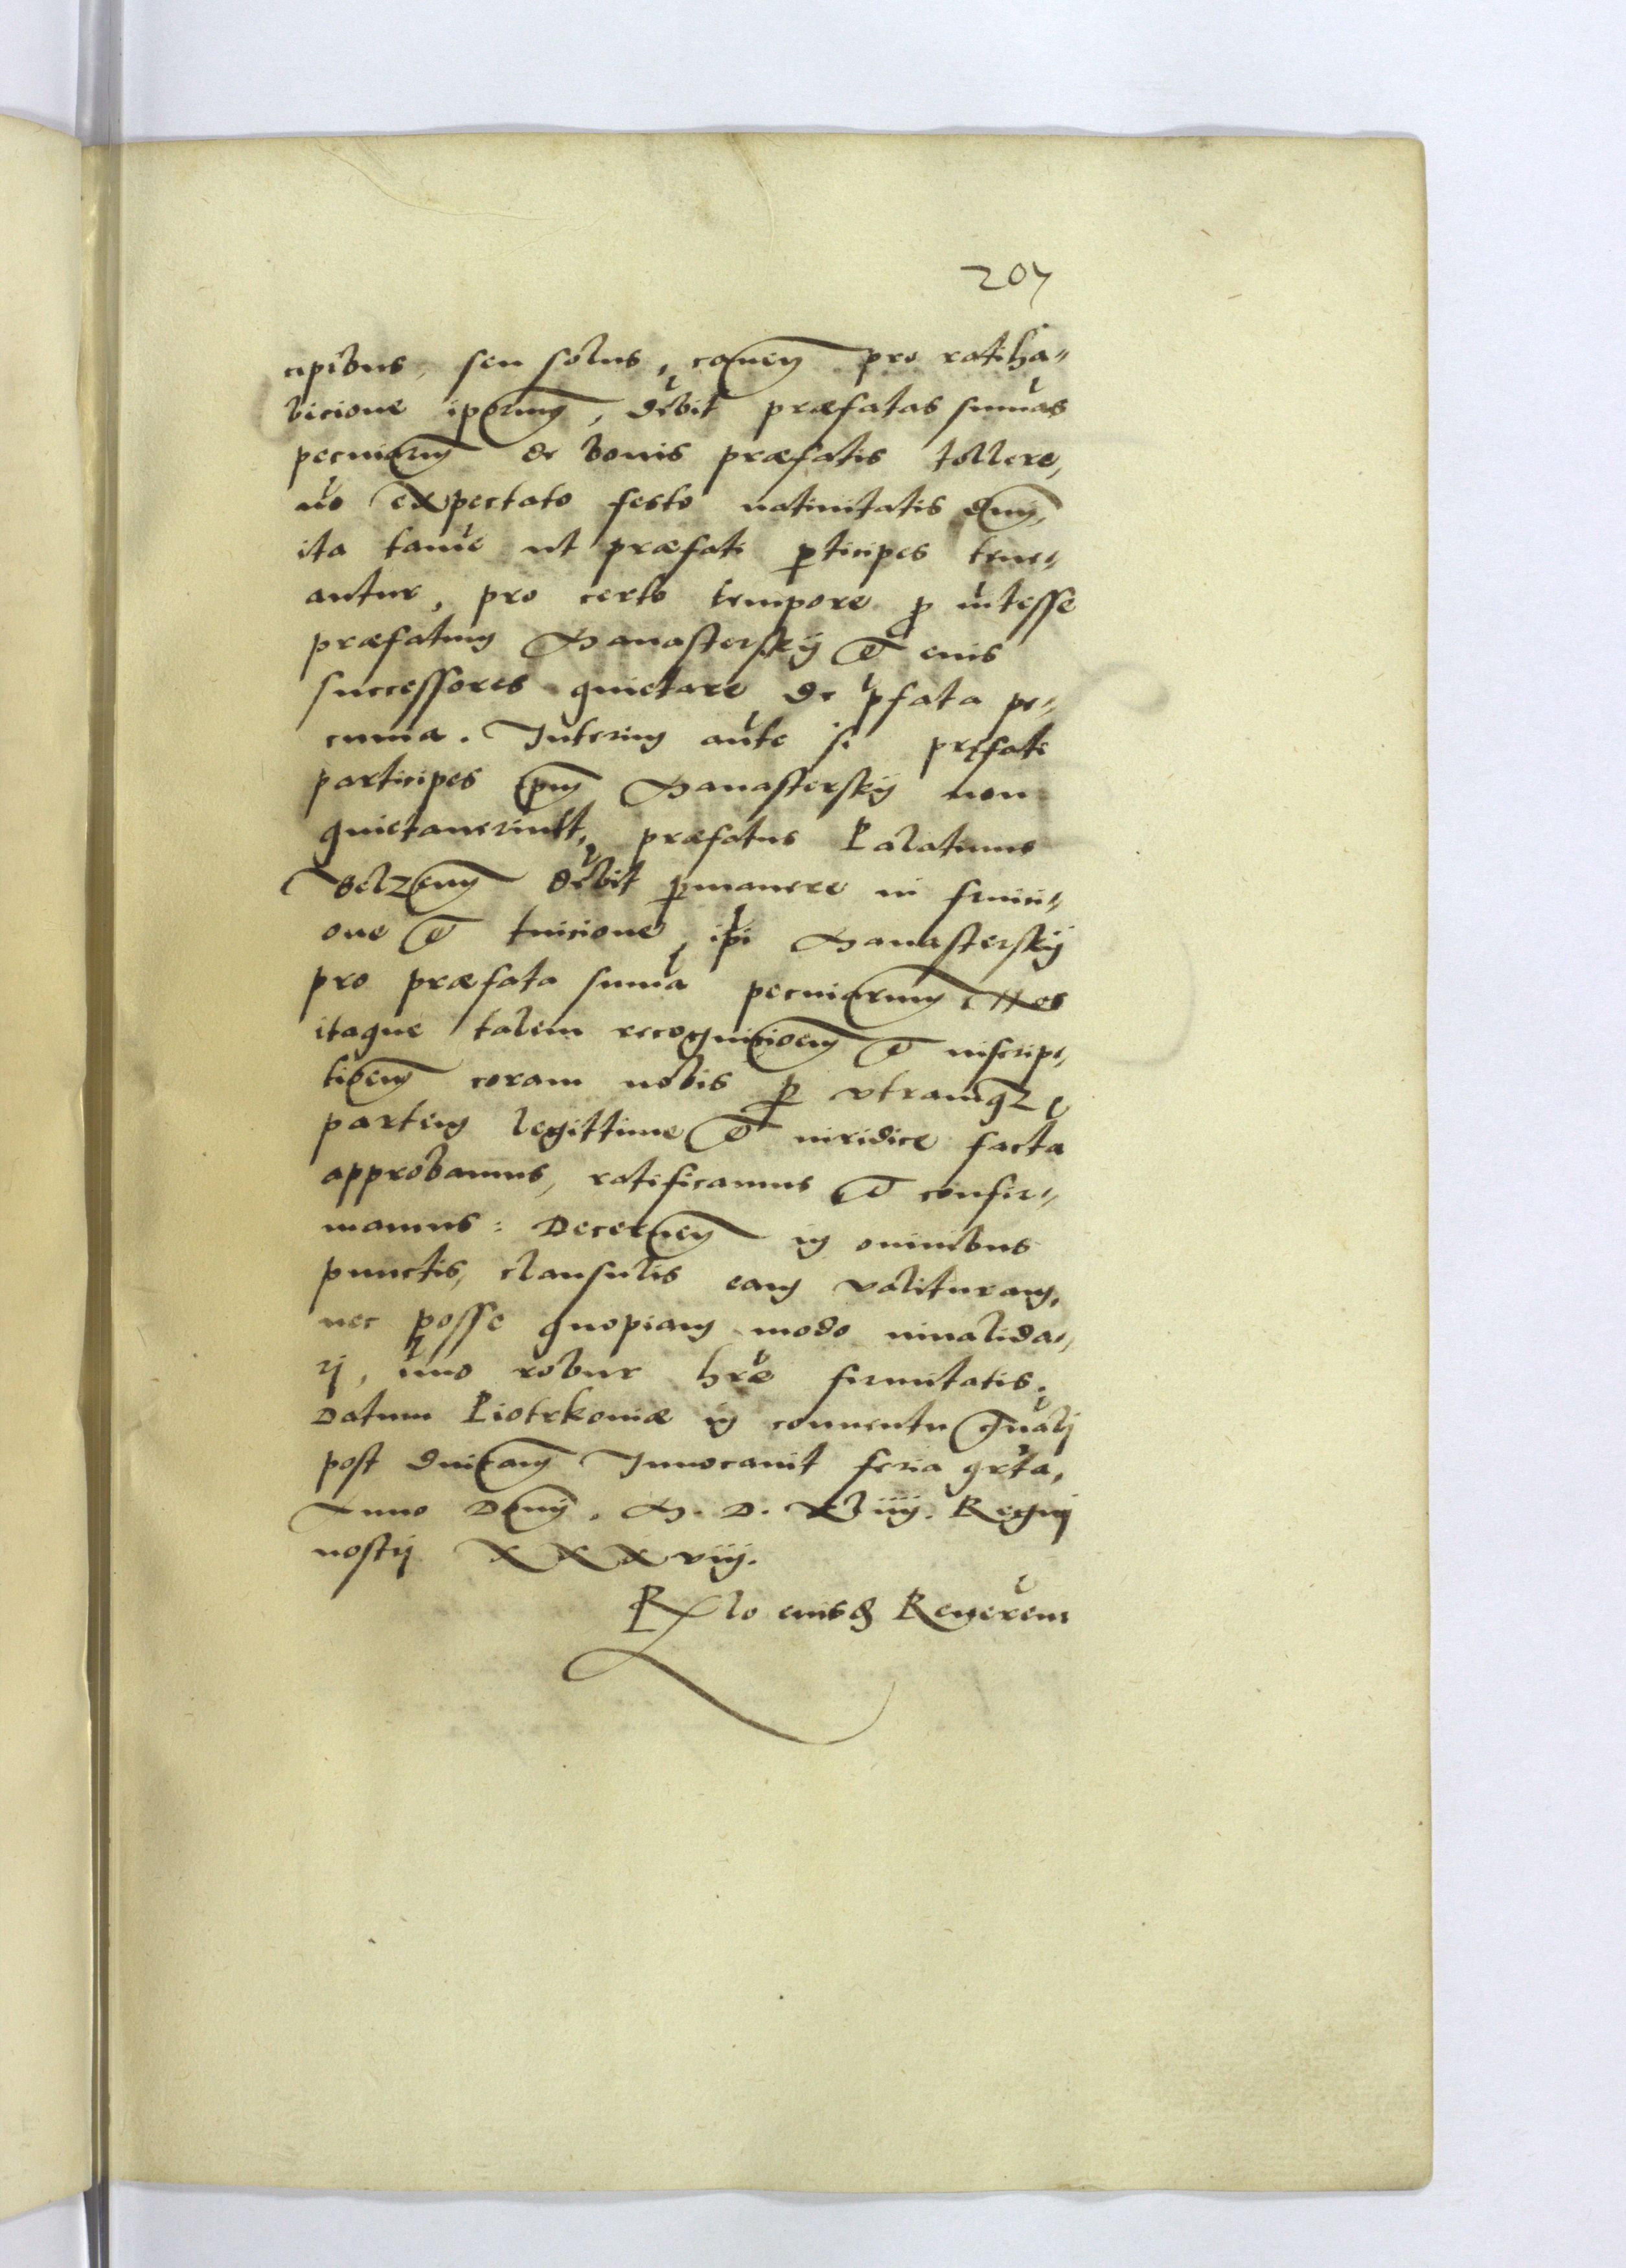 207
cipibus, seu solus, caven pro ratiha-
bicione iporum, debit præfatas summas
pecuniarum de bonis præfatis tollere,
no expectato festo nativitatis dnj,
ita tame ut præfati pticipes tene-
antur, pro certo tempore p intesse
præfatum Manasterskij et eius
successores quietare de pfata pe-
cunia. Interim aute si prefati
participes ipm Manasterskij non
quietaverintt, præfatus Palatinus
Belzen debit pmanere in frui-
one et tuicione, ipi Manasterskij
pro præfata suma pecuniarum. Nos
itaque talem recognicioem et inscrip-
tioem coram nobis p utramqz
partem legittime et iuridice facta
approbamus, ratificamus et confir-
mamus: Decernen in omnibus
punctis, clausulis eam valituram,
nec posse quopiam modo invalida-
rj, imo robur hre firmitatis.
Datum Piotrkoviæ in conventu gnalj
post dnicam Invocavit feria qrta,
Anno Dnj. M. D. xliiij. Regnj
nostrj XXXviij.
Rlo eiusd Reveren